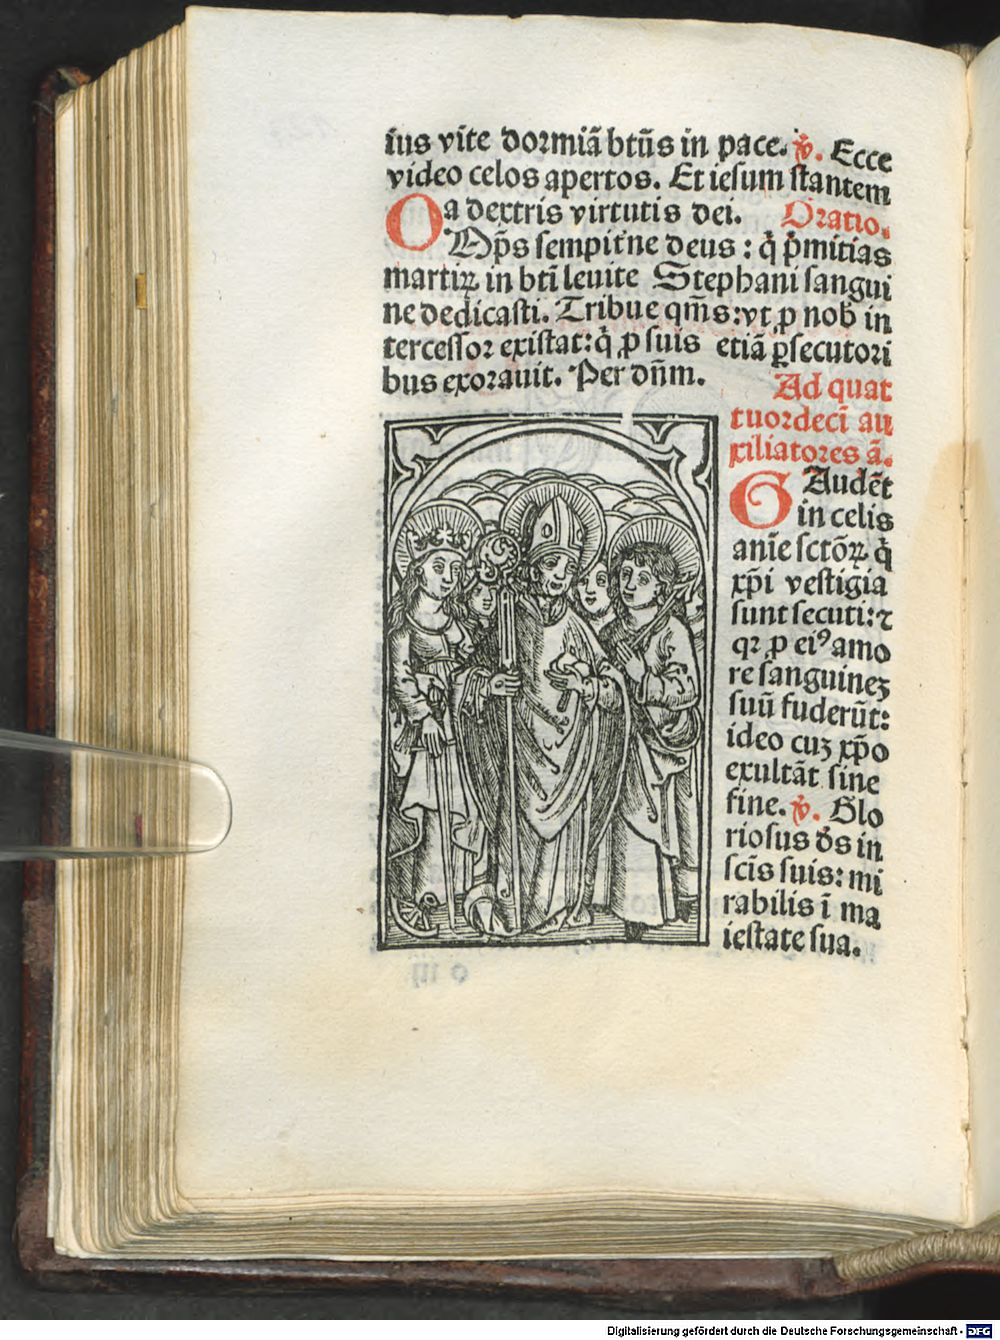 ius vite dormiã btũs in pace. ℣. Ecce
video celos apertos. Et iesum stantem
a dextris virtutis dei. Oratio.
OMp̃s sempit'ne deus: q̇ p̃mitias
martiꝝ in bti leuite Stephani sangui
ne dedicasti. Tribue qm̃s: vt ꝓ nob̄ in
tercessoꝛ existat: q̇ ꝓ suis etiã ꝑsecutoꝛi
bus exoꝛauit. Per dñm.
Ad quat
tuoꝛdecī au
xiliatoꝛes ã.
GAudẽt
in celis
anie sctõꝝ q̇
xp̃i vestigia
sunt secuti: ⁊
qꝛ ꝓ eiꝰ amo
re sanguineꝫ
suũ fuderũt:
ideo cuꝫ xp̃o
exultãt sine
fine. ℣. Glo
riosus de͂s in
scĩs suis: mi
rabilis ĩ ma
iestate sua.
Digitalisierung gefördert durch die Deutsche Forschungsgemeinschaft - DFG